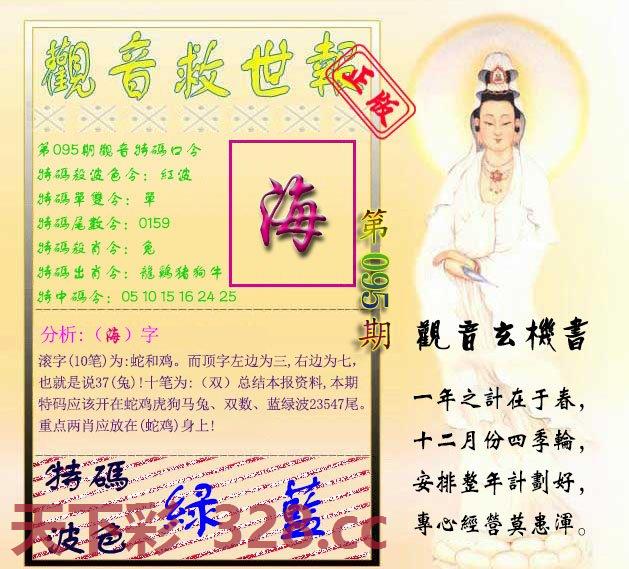 觀音救世報
正版
第095期觀音特碼口令
特碼殺波色令：紅波
特碼單雙令：單
特碼尾數令：0159
特碼殺肖令：兔
特碼出肖令：龍鷄猪狗牛
特中碼令：05 10 15 16 24 25
海
第095期
分析:（海）字
滚字(10笔)为:蛇和鸡。而顶字左边为三,右边为七,
也就是说37(兔)!十笔为:（双）总结本报资料,本期
特码应该开在蛇鸡虎狗马兔、双数、蓝绿波23547尾。
重点两肖应放在(蛇鸡)身上!
特碼
波色
緑 藍
天下彩 328.cc
觀音玄機書
一年之計在于春，
十二月份四季輪，
安排整年計劃好，
專心經營莫患渾。